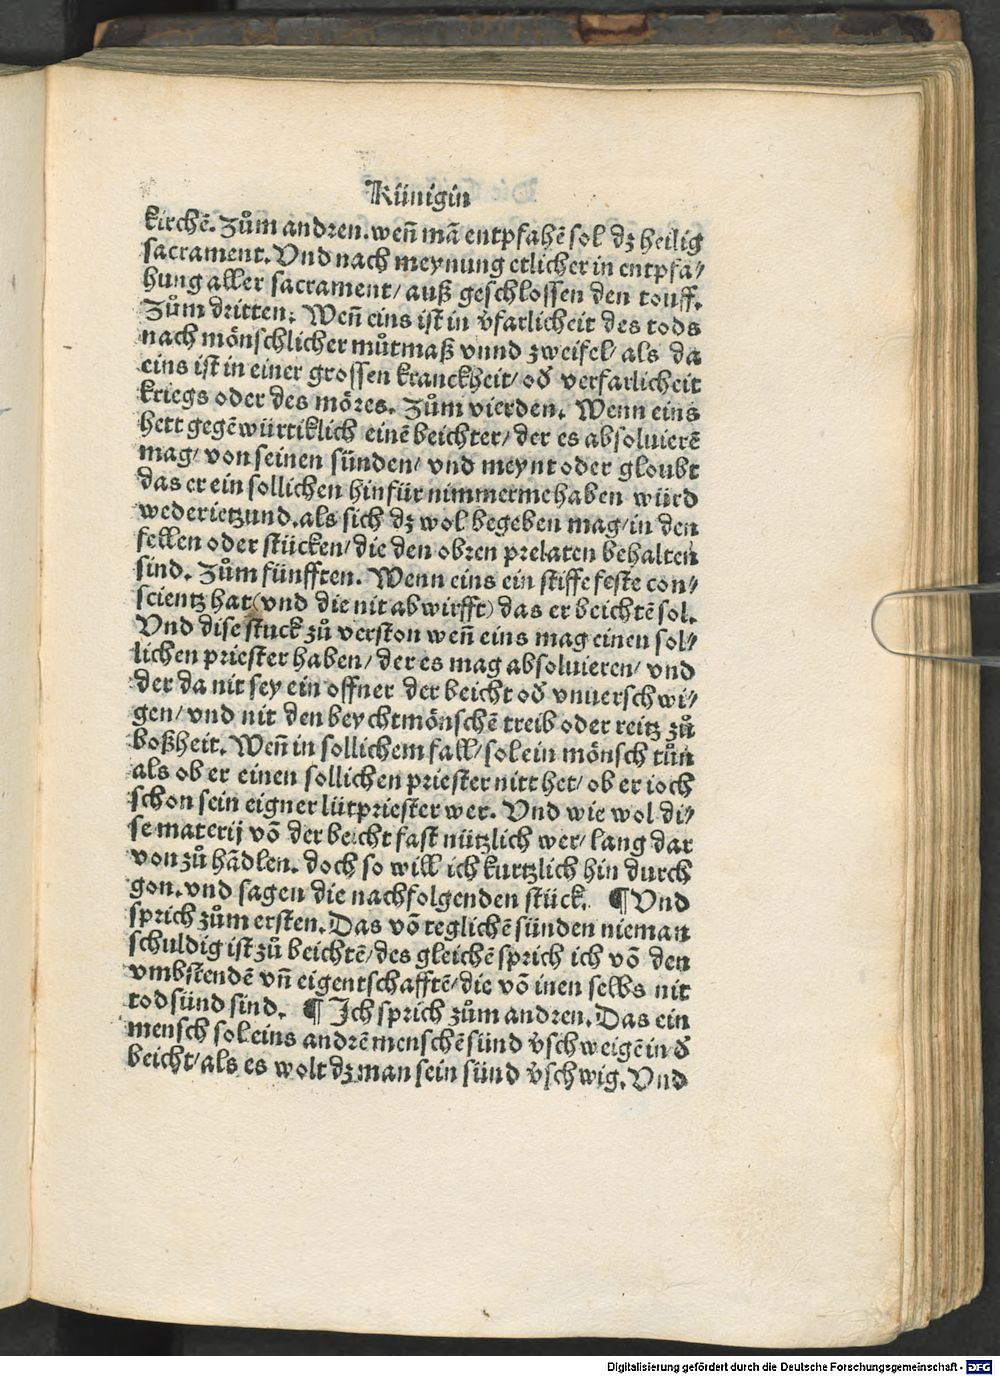 Künigin
kirchē. Zům andren. weñ mā entpfahē sol dʒ heilig
sacrament. Vnd nach meynung etlicher in entpfa/
hung aller sacrament/ auß geschlossen den touff.
Zům dritten. Weñ eins ist in v̄farlicheit des tods
nach mönschlicher můtmaß vnnd zweifel/ als da
eins ist in einer grossen kranckheit/ od̄ verfarlicheit
kriegs oder des möres. Zům vierden. Wenn eins
hett gegēwürtiklich einē beichter/ der es absoluierē
mag/ von seinen sünden/ vnd meynt oder gloubt
das er ein sollichen hinfür nimmerme haben würd
weder ietzund. als sich dʒ wol begeben mag/ in den
fellen oder stücken/ die den obren prelaten behalten
sind. Zům fünfften. Wenn eins ein stiffe feste con/
scientz hat (vnd die nit abwirfft) das er beichtē sol.
Vnd dise stuck zů verston weñ eins mag einen sol/
lichen priester haben/ der es mag absoluieren/ vnd
der da nit sey ein offner der beicht od̄ vnuerschwi/
gen/ vnd nit den beychtmönschē treib oder reitz zů
boßheit. Weñ in sollichem fall/ sol ein mönsch tůn
als ob er einen sollichen priester nitt het/ ob er ioch
schon sein eigner lütpriester wer. Vnd wie wol di/
se materij vō der beicht fast nützlich wer/ lang dar
von zů hādlen. doch so will ich kurtzlich hin durch
gon. vnd sagen die nachfolgenden stück. ¶ Vnd
sprich zům ersten. Das vō teglichē sünden nieman
schuldig ist zů beichtē/ des gleichē sprich ich vō den
vmbstendē vñ eigentschafftē/ die vō inen selbs nit
todsünd sind. ¶ Ich sprich zům andren. Das ein
mensch sol eins andrē menschē sünd v̄schweigē in d̄
beicht/ als es wolt dʒ man sein sünd v̄schwig. Vnd
Digitalisierung gefördert durch die Deutsche Forschungsgemeinschaft - DFG